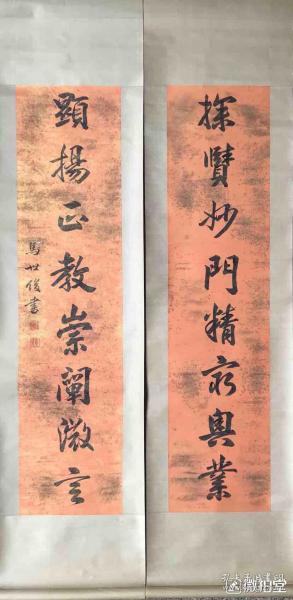 探賾妙門精窮奧業
顯揚正教崇闡微言
馬世俊書
微拍堂